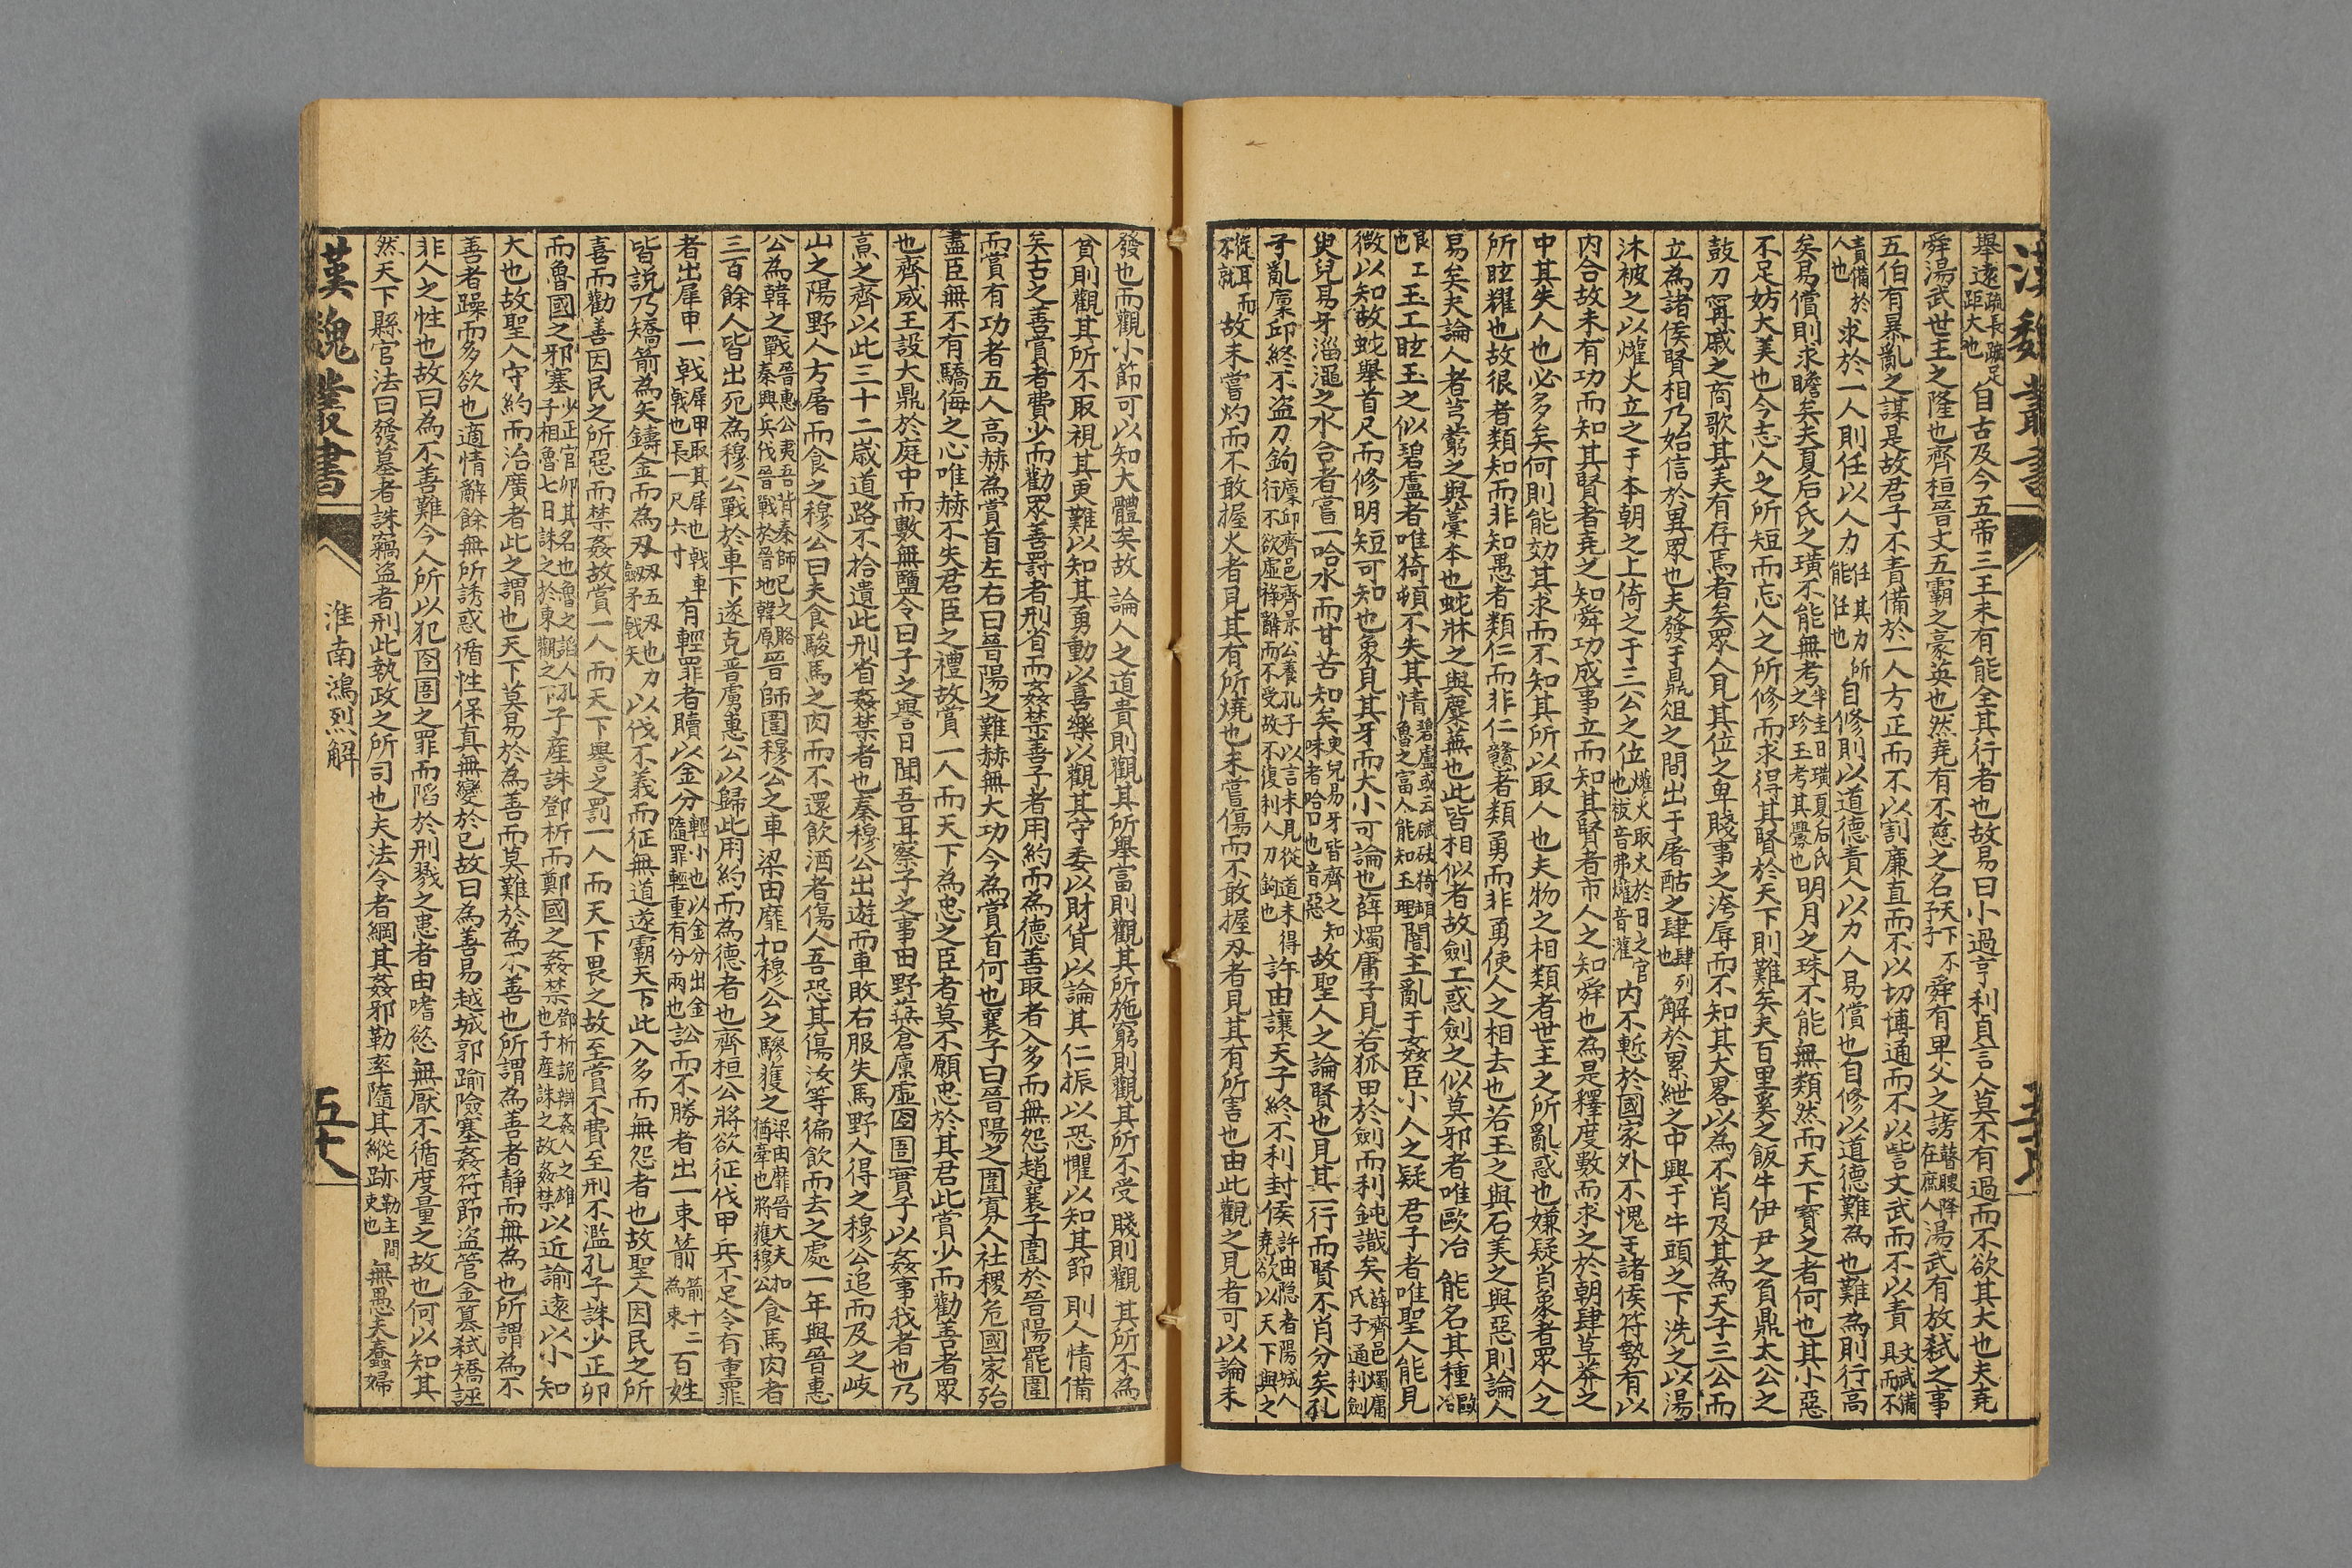 漢魏叢書
舉遠疏長蹠足距大也自古及今五帝三王未有能全其行者也故易曰小過亨利貞言人莫不有過而不欲其大也夫堯
舜湯武世主之隆也齊桓晉文五霸之豪英也然堯有不慈之名天下不子子舜有卑父之謗瞽瞍降在庶人湯武有放弒之事
五伯有暴亂之謀是故君子不責備於一人方正而不以割廉直而不以切博通而不以訾文武而不以責文武備具而不
責備於人也求於一人則任以人力任其力所能任也自修則以道德責人以力人易償也自修以道德難為也難為則行高
矣易償則求瞻矣夫夏后氏之璜不能無考半圭曰璜夏后氏之珍玉考其釁也明月之珠不能無纇然而天下寶之者何也其小惡
不足妨大美也今志人之所短而忘人之所修而求得其賢於天下則難矣夫百里奚之飯牛伊尹之負鼎太公之
鼓刀甯戚之商歌其美有存焉者矣眾人見其位之卑賤事之洿辱而不知其大畧以為不肖及其為天子三公而
立為諸侯賢相乃始信於異眾也夫發于鼎俎之間出于屠酤之肆肆列也解於累紲之中興于牛頷之下洗之以湯
沐祓之以爟火立之于本朝之上倚之于三公之位爟火取火於日之官也祓音弗爟音灌內不慙於國家外不愧于諸侯符勢有以
內合故未有功而知其賢者堯之知舜功成事立而知其賢者市人之知舜也為是釋度數而求之於朝肆草莽之
中其失人也必多矣何則能效其求而不知其所以取人也夫物之相類者世主之所亂惑也嫌疑肖象者眾人之
所眩耀也故很者類知而非知愚者類仁而非仁戇者類勇而非勇使人之相去也若玉之與石美之與惡則論人
易矣夫論人者芎藭之與藁本也蛇牀之與麋蕪也此皆相似者故劍工惑劍之似莫邪者唯歐冶能名其種歐冶
良工也玉工眩玉之似碧盧者唯猗頓不失其情碧盧或云碔砆猗頓魯之富人能知玉理闇主亂于姦臣小人之疑君子者唯聖人能見
微以知故蛇舉首尺而修明短可知也象見其牙而大小可論也薛燭庸子見若狐甲於劍而利鈍識矣薛齊邑燭庸氏子通利劍
臾兒易牙淄澠之水合者嘗一哈水而甘苦知矣臾兒易牙皆齊之知味者哈口也音惡故聖人之論賢也見其一行而賢不肖分矣孔
子辭廩邱終不盜刀鉤廩邱齊邑齊景公養孔子以言未見從道未得行不欲虛祿辭而不受故不復利人刀鉤也許由讓天子終不利封侯許由隱者陽城人堯欲以天下與之
從耳而不就故未嘗灼而不敢握火者見其有所燒也未嘗傷而不敢握刃者見其有所害也由此觀之見者可以論未
發也而觀小節可以知大體矣故論人之道貴則觀其所舉富則觀其所施窮則觀其所不受賤則觀其所不為
貧則觀其所不取視其更難以知其勇動以喜樂以觀其守委以財貨以論其仁振以恐懼以知其節則人情備
矣古之善賞者費少而勸眾善罰者刑省而姦禁善予者用約而為德善取者入多而無怨趙襄子圍於晉陽罷圍
而賞有功者五人高赫為賞首左右曰晉陽之難赫無大功今為賞首何也襄子曰晉陽之圍寡人社稷危國家殆
羣臣無不有驕侮之心唯赫不失君臣之禮故賞一人而天下為忠之臣者莫不願忠於其君此賞少而勸善者眾
也齊威王設大鼎於庭中而數無鹽令曰子之譽日聞吾耳察子之事田野蕪倉廩虛囹圄實子以姦事我者也乃
烹之齊以此三十二歲道路不拾遺此刑省姦禁者也秦穆公出遊而車敗右服失馬野人得之穆公追而及之岐
山之陽野人方屠而食之穆公曰夫食駿馬之肉而不還飲酒者傷人吾恐其傷汝等徧飲而去之處一年與晉惠
公為韓之戰晉惠公夷吾背秦師已之賂秦興兵伐晉戰於晉地韓原晉師圍穆公之車梁由靡扣穆公之驂獲之梁由靡晉大夫扣猶牽也將獲穆公食馬肉者
三百餘人皆出死為穆公戰於車下遂克晉虜惠公以歸此用約而為德者也齊桓公將欲征伐甲兵不足令有重罪
者出犀甲一戟犀甲取其犀也戟車戟也長一尺六寸有輕罪者贖以金分輕小也以金分出金隨罪輕重有分兩也訟而不勝者出一束箭箭十二為束百姓
皆說乃矯箭為矢鑄金而為刃刃五刃也刀劍矛戟矢以伐不義而征無道遂霸天下此入多而無怨者也故聖人因民之所
喜而勸善因民之所惡而禁姦故賞一人而天下譽之罰一人而天下畏之故至賞不費至刑不濫孔子誅少正卯
而魯國之邪塞少正官卯其名也魯之謟人孔子相魯七日誅之於東觀之下子產誅鄧析而鄭國之姦禁鄧析詭辯姦人之雄也子產誅之故姦禁以近諭遠以小知
大也故聖人守約而治廣者此之謂也天下莫易於為善而莫難於為不善也所謂為善者靜而無為也所謂為不
善者躁而多欲也適情辭餘無所誘惑循性保真無變於己故曰為善易越城郭踰險塞姦符節盜管金篡弒矯誣
非人之性也故曰為不善難今人所以犯囹圄之罪而陷於刑戮之患者由嗜慾無厭不循度量之故也何以知其
然天下縣官法曰發墓者誅竊盜者刑此執政之所司也夫法令者網其姦邪勒率隨其縱跡勒主間吏也無愚夫蠢婦
漢魏叢書
淮南鴻烈解
五十八